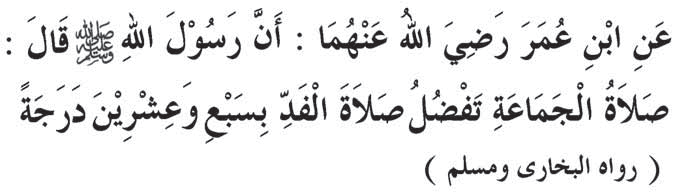 عَنِ ابْنِ عُمَرَ رَضِيَ اللهُ عَنْهُمَا : أَنَّ رَسُوْلَ اللهِ ﷺ قَالَ :
صَلَاةُ الْجَمَاعَةِ تَفْضُلُ صَلَاةَ الْفَدِّ بِسَبْعِ وَعِشْرِيْنَ دَرَجَةً
( رواه البخارى ومسلم )